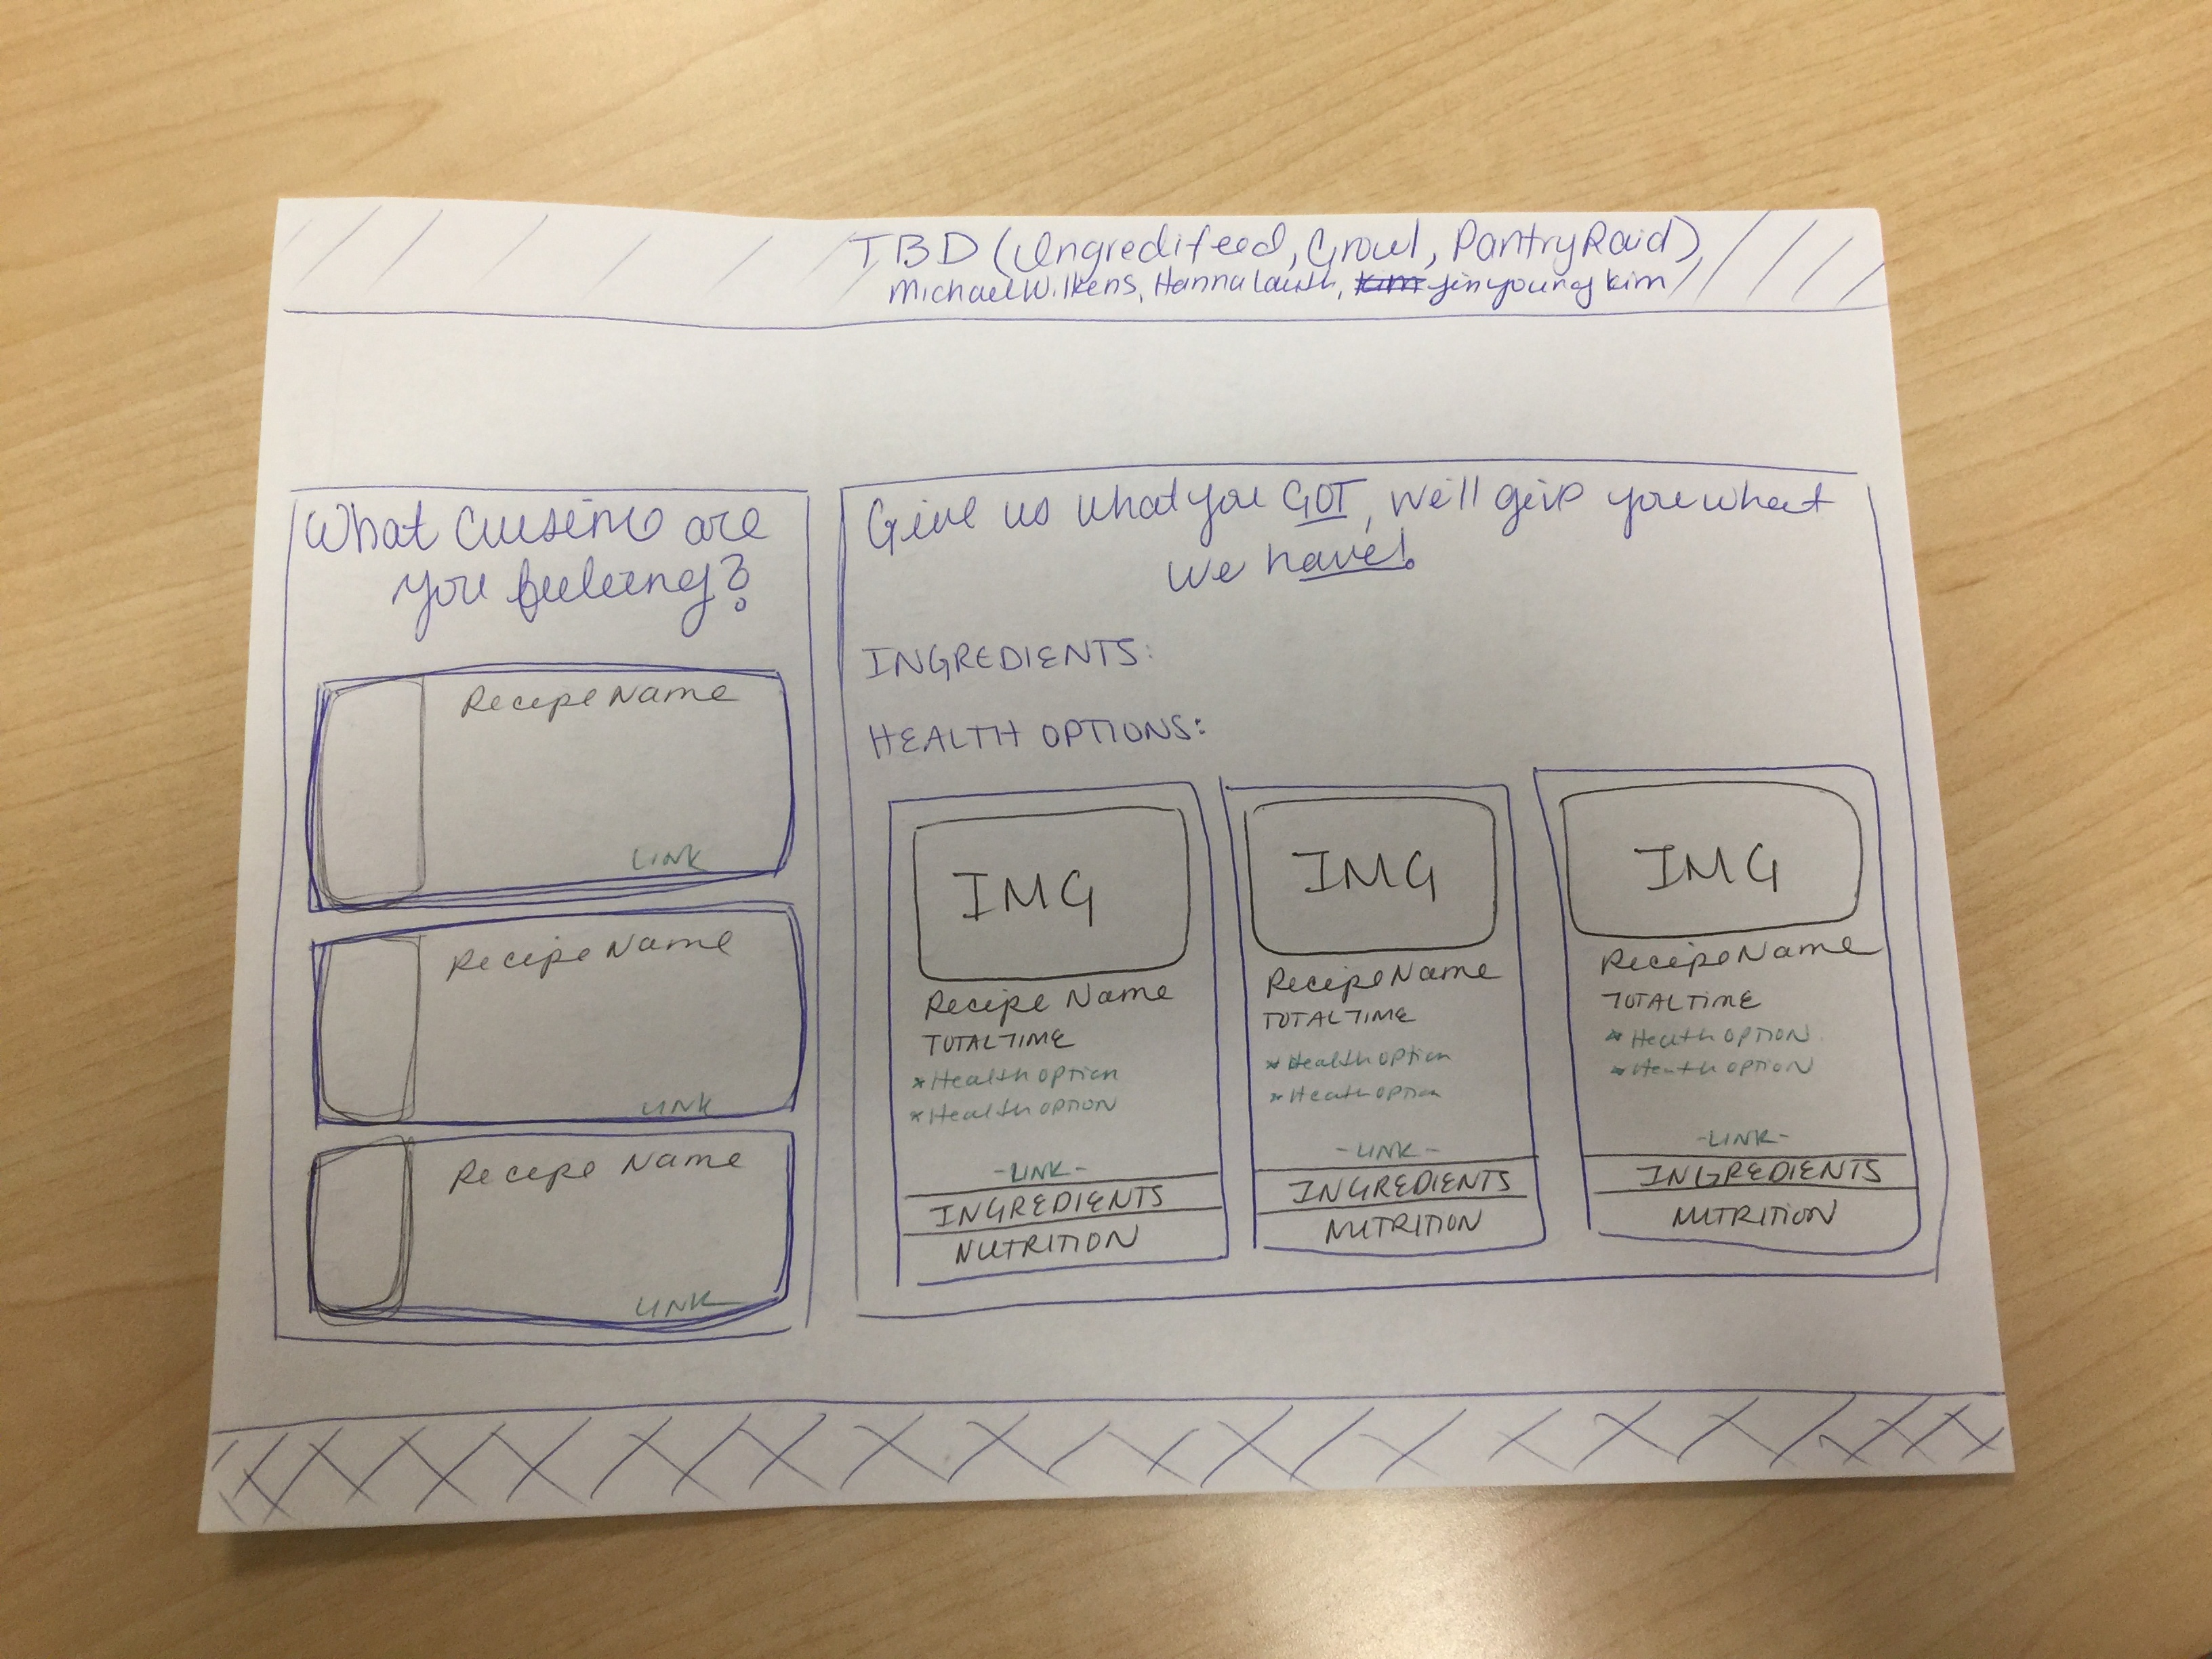 TBD (Ingredifeed, Growl, PantryRaid)
Michael Wilkens, Hanna Lauth, Kim jinyoung kim
What Cuisine are
you feeling?
Recipe Name
LINK
Recipe Name
LINK
Recipe Name
LINK
Give us what you GOT, we'll give you what
we have!
INGREDIENTS:
HEALTH OPTIONS:
IMG
Recipe Name
TOTAL TIME
*Health option
*Health OPTION
-LINK-
INGREDIENTS
NUTRITION
IMG
Recipe Name
TOTAL TIME
*Health option
*Health option
-LINK-
INGREDIENTS
NUTRITION
IMG
Recipe Name
TOTAL TIME
*Health OPTION
*Health OPTION
-LINK-
INGREDIENTS
NUTRITION